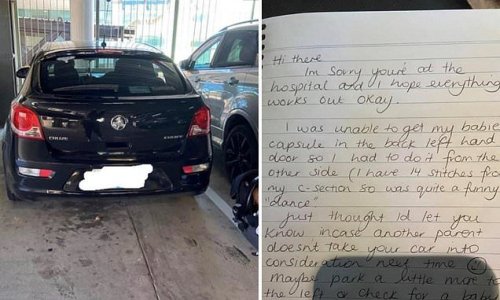 CRUZE
Hi there
I'm sorry you're at the
hospital and I hope everything
works out okay.
I was unable to get my babies
capsule in the back left hand
door so I had to do it from the
other side (I have 14 stitches from
my c-section so was quite a funny
"dance"
Just thought I'd let you
know incase another parent
doesnt take your car into
consideration next time
Maybe park a little more to
the left or check for a baby